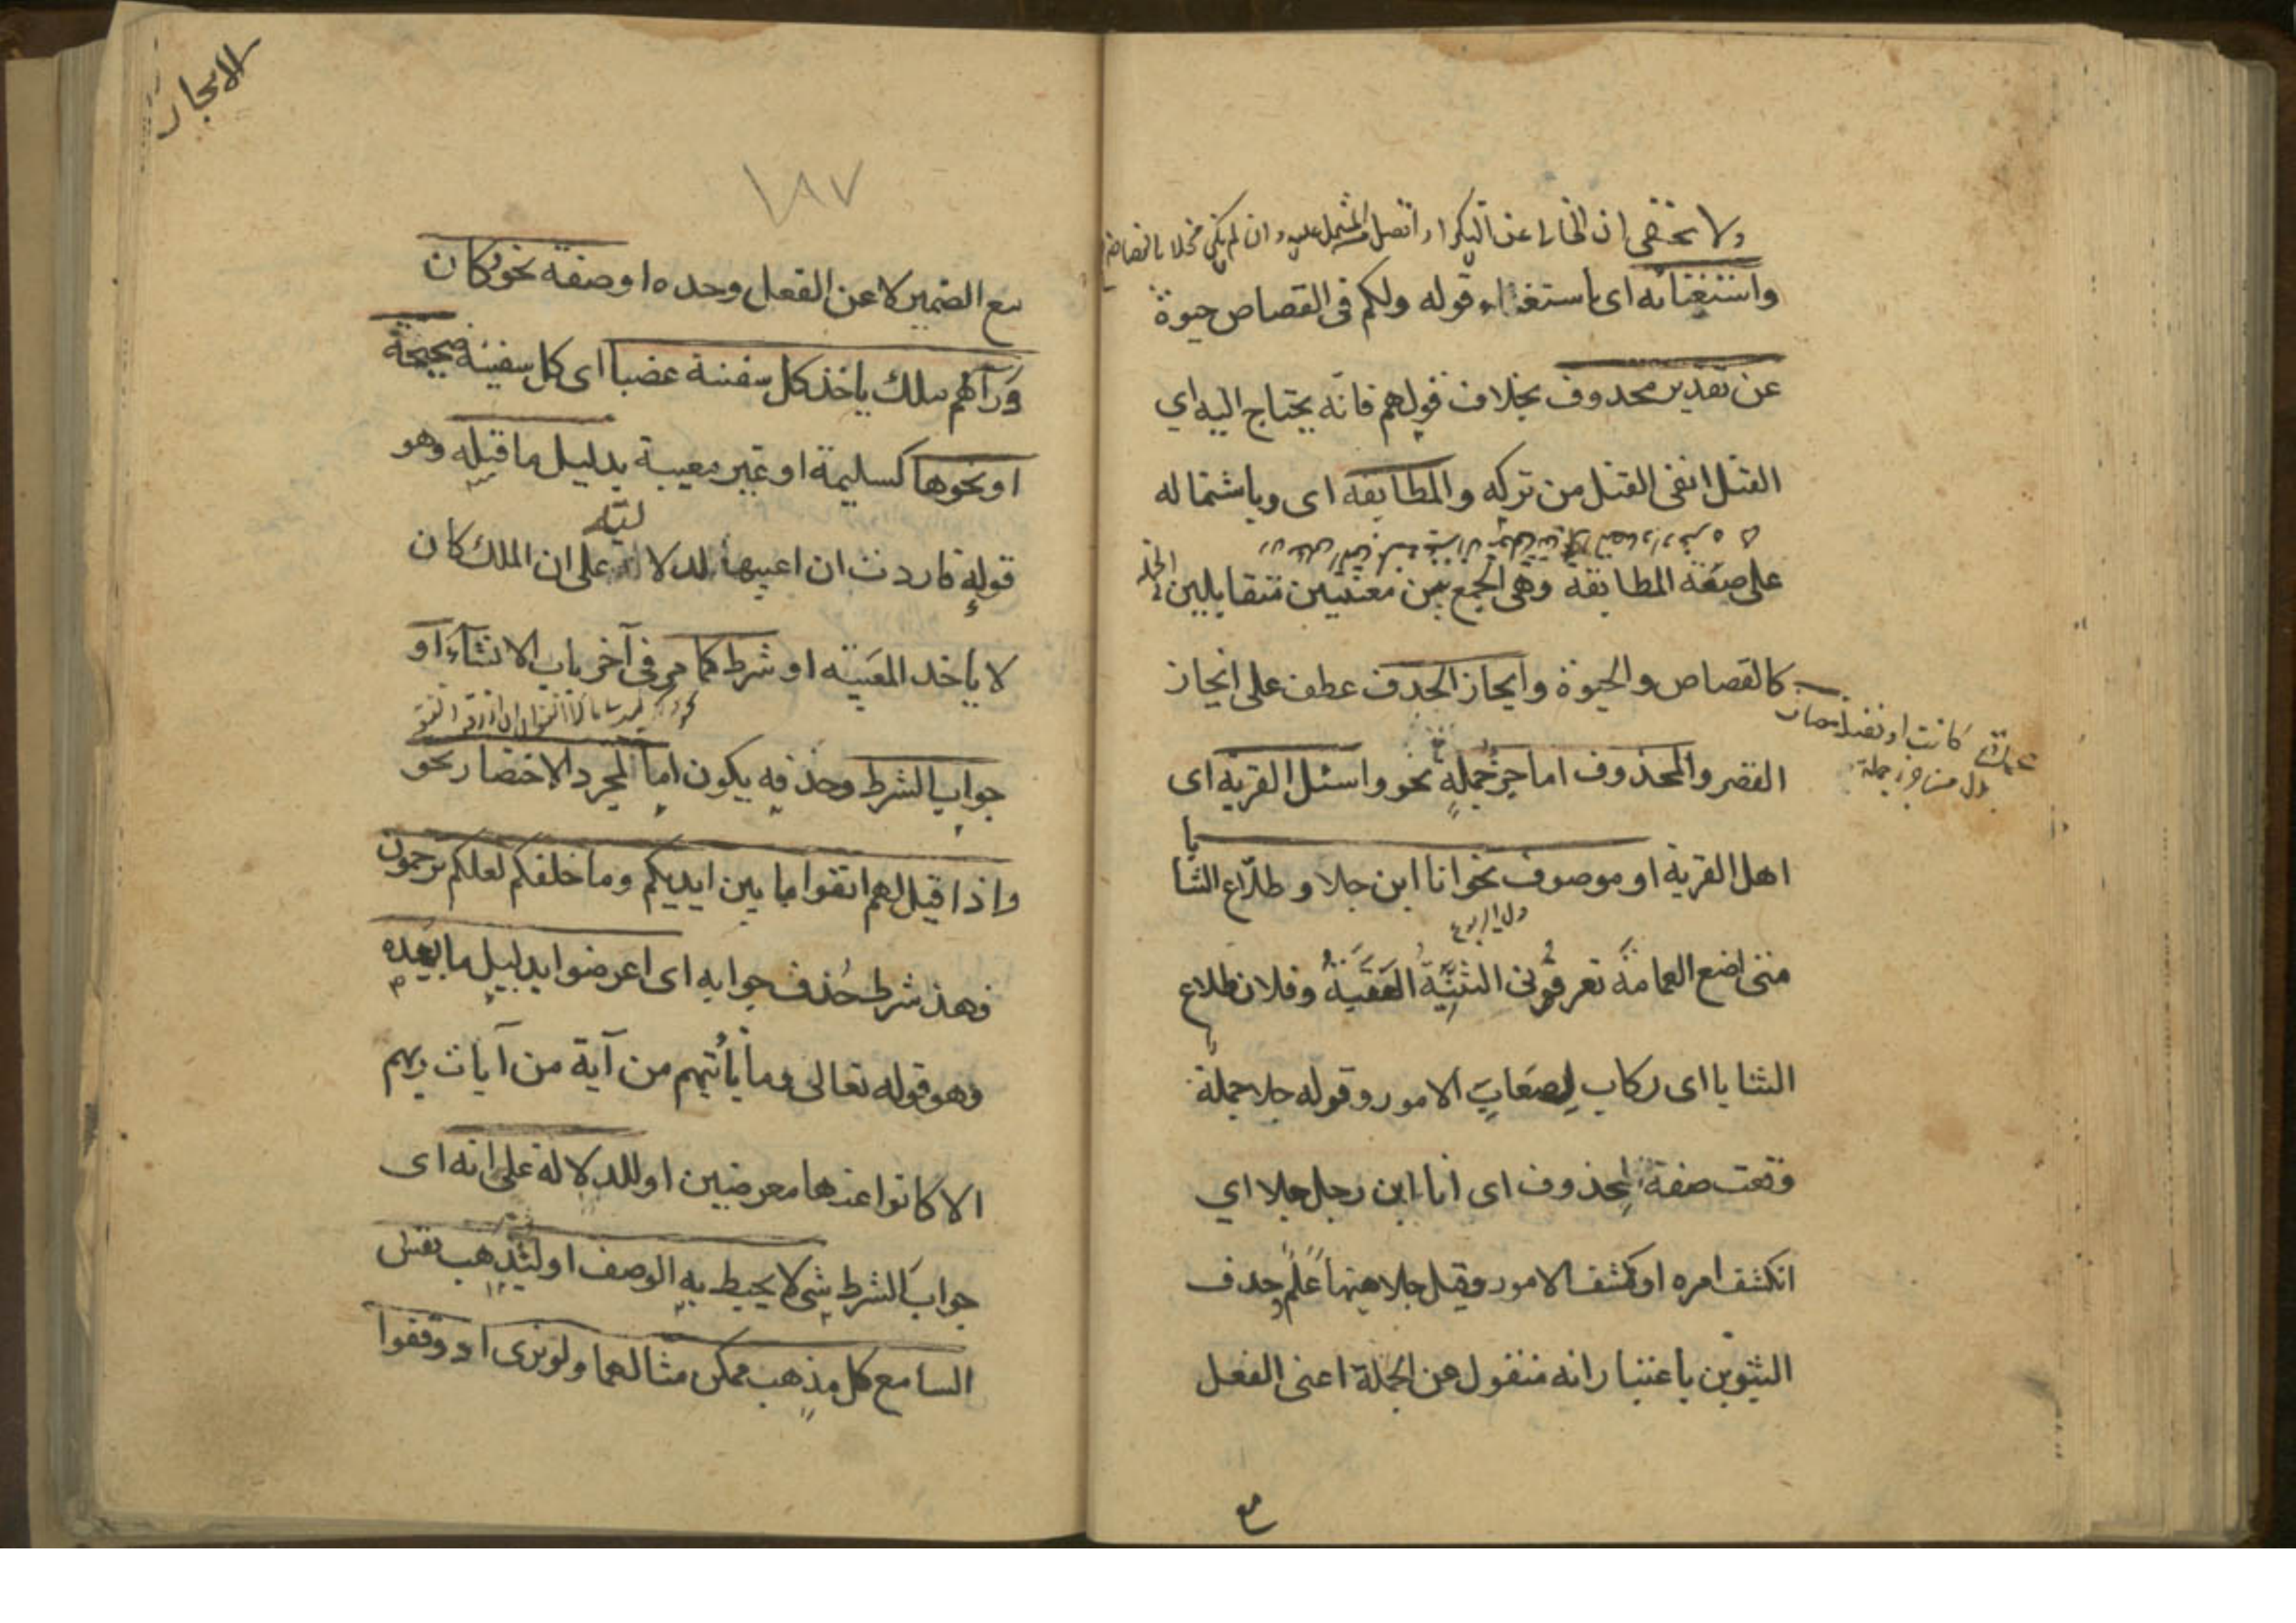 ولا يخفى ان الخالى عن التكرار افضل من المشتمل عليه وان لم يكن مخلا بالفصاحة
واستغنائه اى باستغناء قوله ولكم فى القصاص حيوة
عن تقدير محذوف بخلاف قولهم فانه يحتاج اليه اي
القتل انفى القتل من تركه والمطابقة اى وباشتماله
على صنعة المطابقة وهى الجمع بين معنيين متقابلين
كالقصاص والحيوة وايجاز الحذف عطف على ايجاز
عمدة كانت او فضلة مضاف
بدل من جزء جملة
القصر والمحذوف اما جزء جملةٍ نحو واسئل القرية اى
اهل القرية او موصوف نحو انا ابن جلا وطلّاع الثنا
يا
متى اضع العمامة تعرفونى الثنيّة العقبة وفلان طلاع
الثنايا اى ركاب لِصعَابِ الامور وقوله جلا جملة
وقعت صفة لمحذوف اى انا ابن رجل جلا اي
انكشف امره او كشف الامور وقيل جلا هيهنا علم حذف
التنوين باعتبار انه منقول عن الجملة اعنى الفعل
مع
الايجاز
١٨٧
مع الضمير لا عن الفعل وحده او صفة نحو وكان
ورآئهم ملك ياخذ كل سفينة غصبا اى كل سفينة صحيحة
او نحوها كسليمة او غير معيبة بدليل ما قبله وهو
قوله فاردت ان اعيبها لدلالته على ان الملك كان
لا يأخذ المعيبة او شرط كما مر فى آخر باب الانشآء او
جواب الشرط وحذفه يكون اما لمجرد الاختصار نحو
واذا قيل لهم اتقوا ما بين ايديكم وما خلفكم لعلكم ترحمون
فهذ شرط حُذف جوابه اى اعرضوا بدليل ما بعده
وهو قوله تعالى وما يأتيهم من آية من آيات ربهم
الا كانوا عنها معرضين او للدلالة على انه اى
جوابَ الشرط شى لا يحيط به الوصف او ليذهب نفس
السامع كل مذهب ممكن مثالهما ولو ترى اذ وقفوا